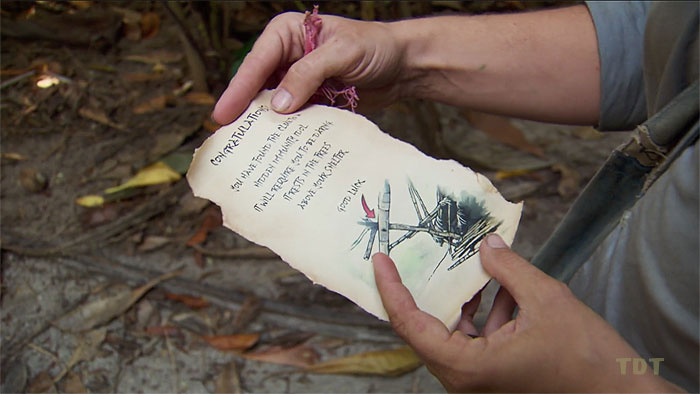 CONGRATULATIONS
YOU HAVE FOUND THE CLUE TO A
HIDDEN IMMUNITY IDOL
IT WILL REQUIRE YOU TO BE DARING
IT RESTS IN THE TREES
ABOVE YOUR SHELTER
GOOD LUCK
TDT